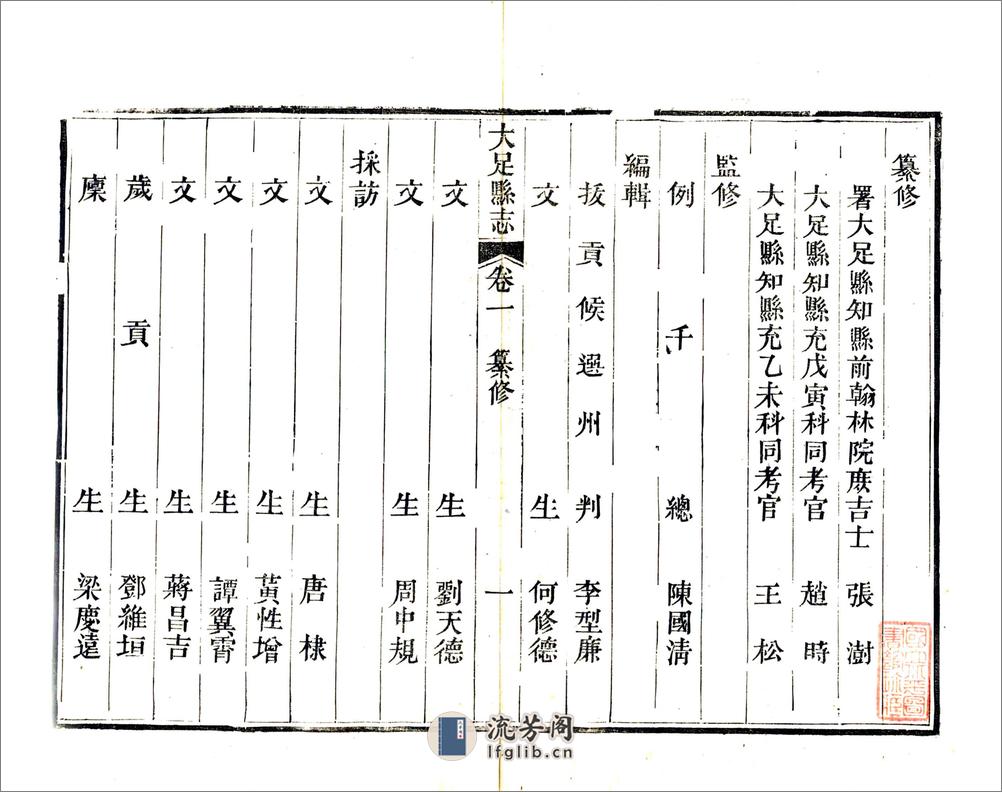 纂修
署大足縣知縣前翰林院庶吉士 張澍
大足縣知縣充戊寅科同考官 趙時
大足縣知縣充乙未科同考官 王松
監修
例千總 陳國淸
編輯
拔貢候選州判 李型廉
文生 何修德
大足縣志 卷一 纂修 一
文生 劉天德
文生 周中規
採訪
文生 唐棣
文生 黃性增
文生 譚翼霄
文生 蔣昌吉
歲貢生 鄧維垣
廩生 梁慶遠
流芳阁
lfglib.cn